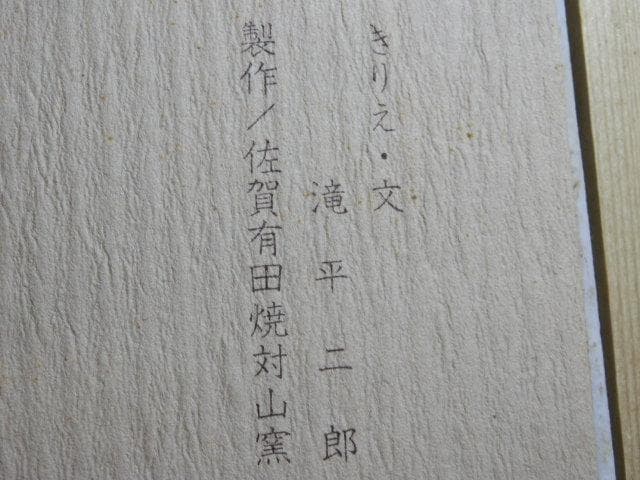 きりえ・文
滝平二郎
製作/佐賀有田焼対山窯